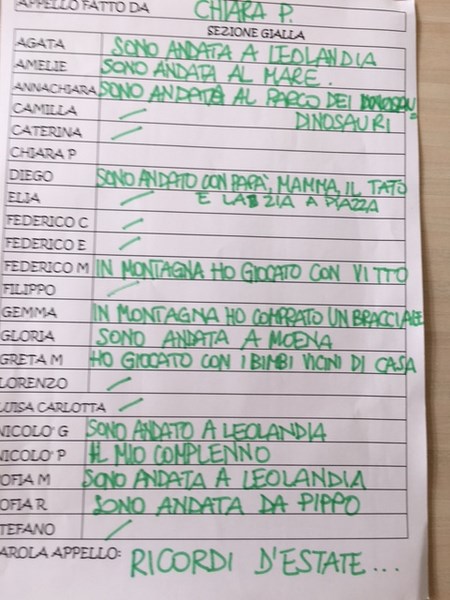 APPELLO FATTO DA CHIARA P.
SEZIONE GIALLA
AGATA SONO ANDATA A LEOLANDIA
AMELIE SONO ANDATA AL MARE.
ANNACHIARA SONO ANDATA AL PARCO DEI
CAMILLA / DINOSAURI
CATERINA /
CHIARA P
DIEGO SONO ANDATO CON PAPA', MAMMA, IL TATO
ELIA / E LA ZIA A PIAZZA
FEDERICO C /
FEDERICO E /
FEDERICO M IN MONTAGNA HO GIOCATO CON VITTO
FILIPPO /
GEMMA IN MONTAGNA HO COMPRATO UN BRACCIALE
GLORIA SONO ANDATA A MOENA
GRETA M HO GIOCATO CON I BIMBI VICINI DI CASA
LORENZO /
LUISA CARLOTTA /
NICOLO' G SONO ANDATO A LEOLANDIA
NICOLO' P IL MIO COMPLENNO
OFIA M SONO ANDATA A LEOLANDIA
OFIA R SONO ANDATA DA PIPPO
TEFANO /
AROLA APPELLO: RICORDI D'ESTATE...